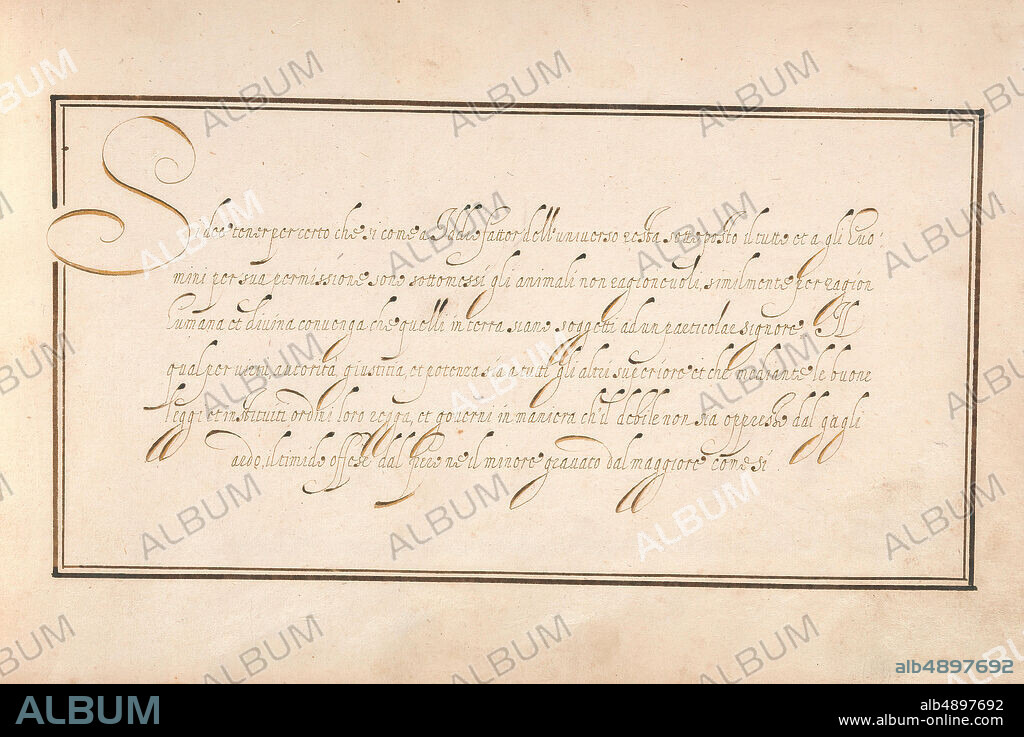 Si dee tener per certo che si come a Iddio fattor dell'universo resta sottoposto il tutto et a gli huo-
mini per sua permissione sono sottomessi gli animali non ragionevoli, similmente per ragion
humana et divina convenga che quelli in terra siano soggetti ad un particolar signore, Il
qual per viem autorità, giustitia, et potenza sia a tuti gli altri superiore et che mediante le buone
leggi et instituiti ordini loro regga, et governi in maniera ch'il debile non sia oppresso dal gagli
ardo, il timido offeso dal fero ne il minore gravato dal maggiore come si.
ALBUM
alb4897692
ALBUM
alb4897692
www.album-online.com